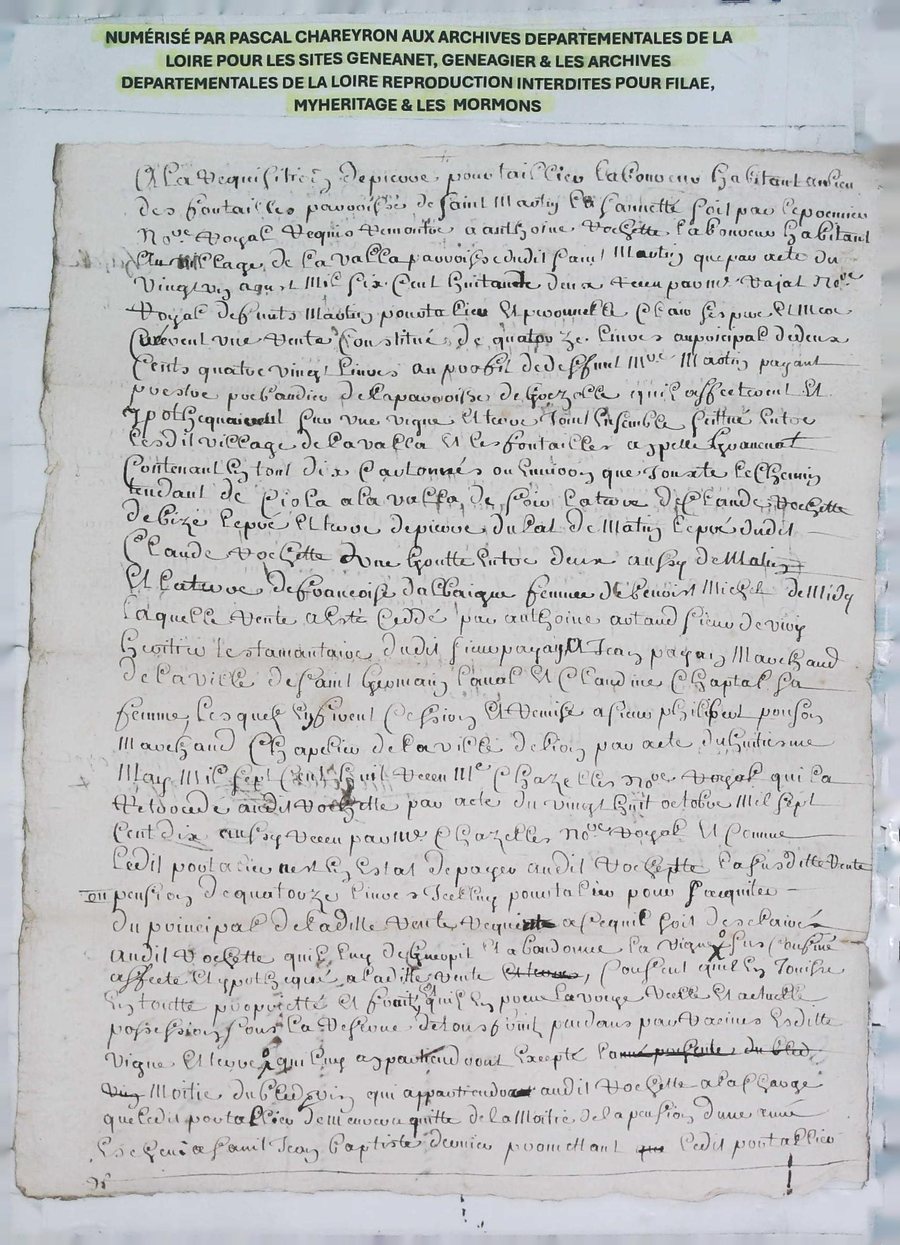 NUMÉRISÉ PAR PASCAL CHAREYRON AUX ARCHIVES DEPARTEMENTALES DE LA
LOIRE POUR LES SITES GENEANET, GENEAGIER & LES ARCHIVES
DEPARTEMENTALES DE LA LOIRE REPRODUCTION INTERDITES POUR FILAE,
MYHERITAGE & LES MORMONS
A La Requisition de pierre pourtaillier laboureur habitant au lieu
des fontailles parroisse de saint Martin la sannette soit par le premier
No.re Royal Requis Remontre a anthoine Rochette laboureur habitant
village de la valla parroisse dudit saint Martin que par acte du
vingt aoust Mil six Cent huitante deux Receu par m.e No.re
Royal pourtalier Et
une Rente Constitué de quatorze Livres au principal de deux
Cents quatre vingt Livres au proffit de deffunt M.re Martin payant
prestre de la parroisse de quil affecterent Et
ypothequerent sur une vigne Et terre Joint Ensemble scittué Entre
lesdit village de la valla Et les fontailles appellé
Contenant En tout dix Cartonnés ou Environ que Jouxte le Chemin
tendant de a la valla de soir la terre de Claude Rochette
de bize le pré Et terre de pierre de Matin le pré dudit
Claude Rochette Une goutte Entre deux aussy de Matin
Et la terre de francoise femme de benoist Michel de Midy
laquelle Rente a esté Cedé par anthoine artaud sieur de
heritier testamantaire dudit sieur payan A Jean payan Marchand
de la ville de saint Germain Laval Et Claudine Chaptal sa
femme, lesquels En firent Cession Et Remise a sieur philibert ponson
Marchand Chapelier de la ville de lion par acte du huitiesme
May Mil sept Cent huit Receu M.e Chazelles No.re Royal qui la
Retrocede audit Rochette par acte du vingt huit octobre Mil sept
Cent dix aussy Receu par M.e Chazelles No.re Royal Et Comme
ledit pourtalier nest En Estat de payer audit Rochette la susditte Rente
ou pension de quatorze Livres Icelluy pourtalier pour sacquiter
du principal de laditte Rente a ce quil soit desclairé
audit Rochette quil luy deguerpit Et abandonne la vigne sus Confiné
affecté Et ypothequé a laditte Rente Consent quil En Jouisse
En toutte proprietté Et fruit, quil En prene la vraye Reelle Et actuelle
possession sous la Reserve de tous fruits pendans par Racines Esditte
vigne Et terre qui luy appartiendront Excepté
Moitié du bled qui appartiendra audit Rochette a la charge
que ledit pourtallier demeurera quitte de la Moitié de la pension dune année
Escheu a saint Jean baptiste dernier promettant ledit pourtallier